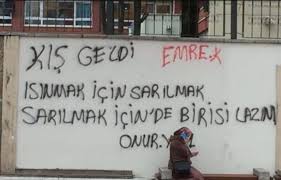 KIŞ GELDİ
EMRE.X
ISINMAK İÇİN SARILMAK
SARILMAK İÇİN'DE BİRİSİ LAZIM
ONUR.Y